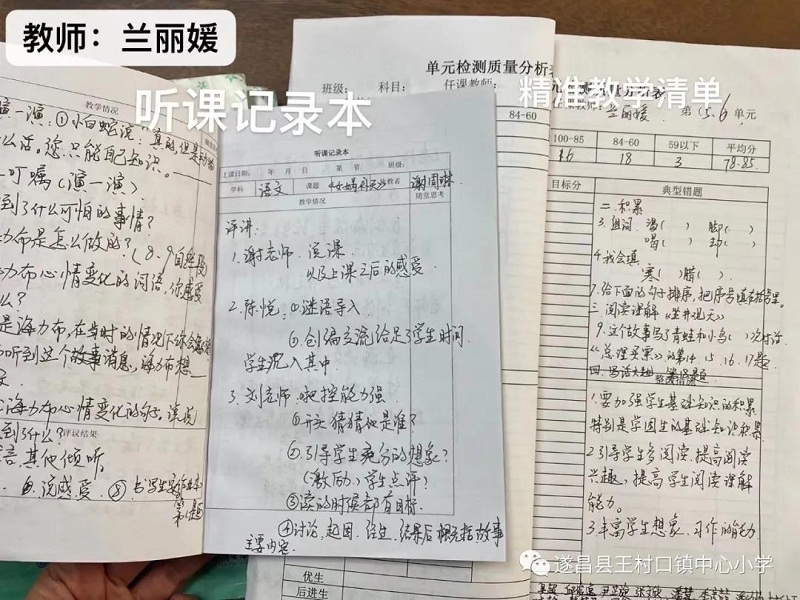 教师：兰丽媛
听课记录本
精准教学清单
教学情况
演一演：①小白蛇说：真的，但是动物
么活。您只能自己知道。
叮嘱（演一演）
到了什么可怕的事情？
力布是怎么做的？（8、9自然段
力布心情变化的词语，你感受
么？
是海力布，在当时的情况下你会怎
听到这个故事消息，海力布想
海力布心情变化的句子。读读
到了什么？
评议结果
其他倾听。
⑥.谈感受
听课记录本
上课日期： 年 月 日 第 节 班级：
学科 语文 课题 教者 谢周琳
教学情况 随堂思考
评讲：
1. 谢老师 说课
以及上课之后的感受
2. 陈悦：①谜语导入
⑥创编交流给足了学生时间
学生沉入其中
3. 刘老师 ①课控能力强
①开交 猜猜他是谁？
②引导学生充分的想象？
（激励）学生点评？
③读的时候都有目标
④讨论，起因、经过、结果后概括故事
主要内容.
单元检测质量分析
班级： 科目： 任课教师：
84-60
兰丽媛 第 5.6 单元
100-85 84-60 59以下 平均分
18 3 78.85
目标分 典型错题
二.积累
3.组词：渴（ ） 脚（ ）
喝（ ） 却（ ）
4 我会填
寒（ ）腊（ ）.
7.给下面的句子排序，把序号填在括号里.
三 阅读理解《坐井观天》
9.这个故事写了青蛙和小鸟（ ）次对话
的第14.15.16.17题
四.写话大题
1.要加强学生基础知识的积累
特别是学困生的基础知识积累
2.引导学生多阅读 提高阅读
兴趣，提高学生阅读理解
能力。
3.丰富学生想象，习作的能力
优生
后进生
遂昌县王村口镇中心小学